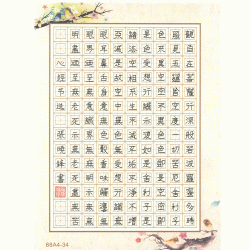 觀自在菩薩行深般若波羅蜜多時
照見五蘊皆空度一切苦厄舍利子
色不異空空不異色色即是空空即
是色受想行識亦復如是舍利子是
諸法空相不生不滅不垢不淨不增
不減是故空中無色無受想行識無
眼耳鼻舌身意無色聲香味觸法無
眼界乃至無意識界無無明亦無無
明盡乃至無老死亦無老死盡無苦
心經節選 張曉鋒書
88A4-34